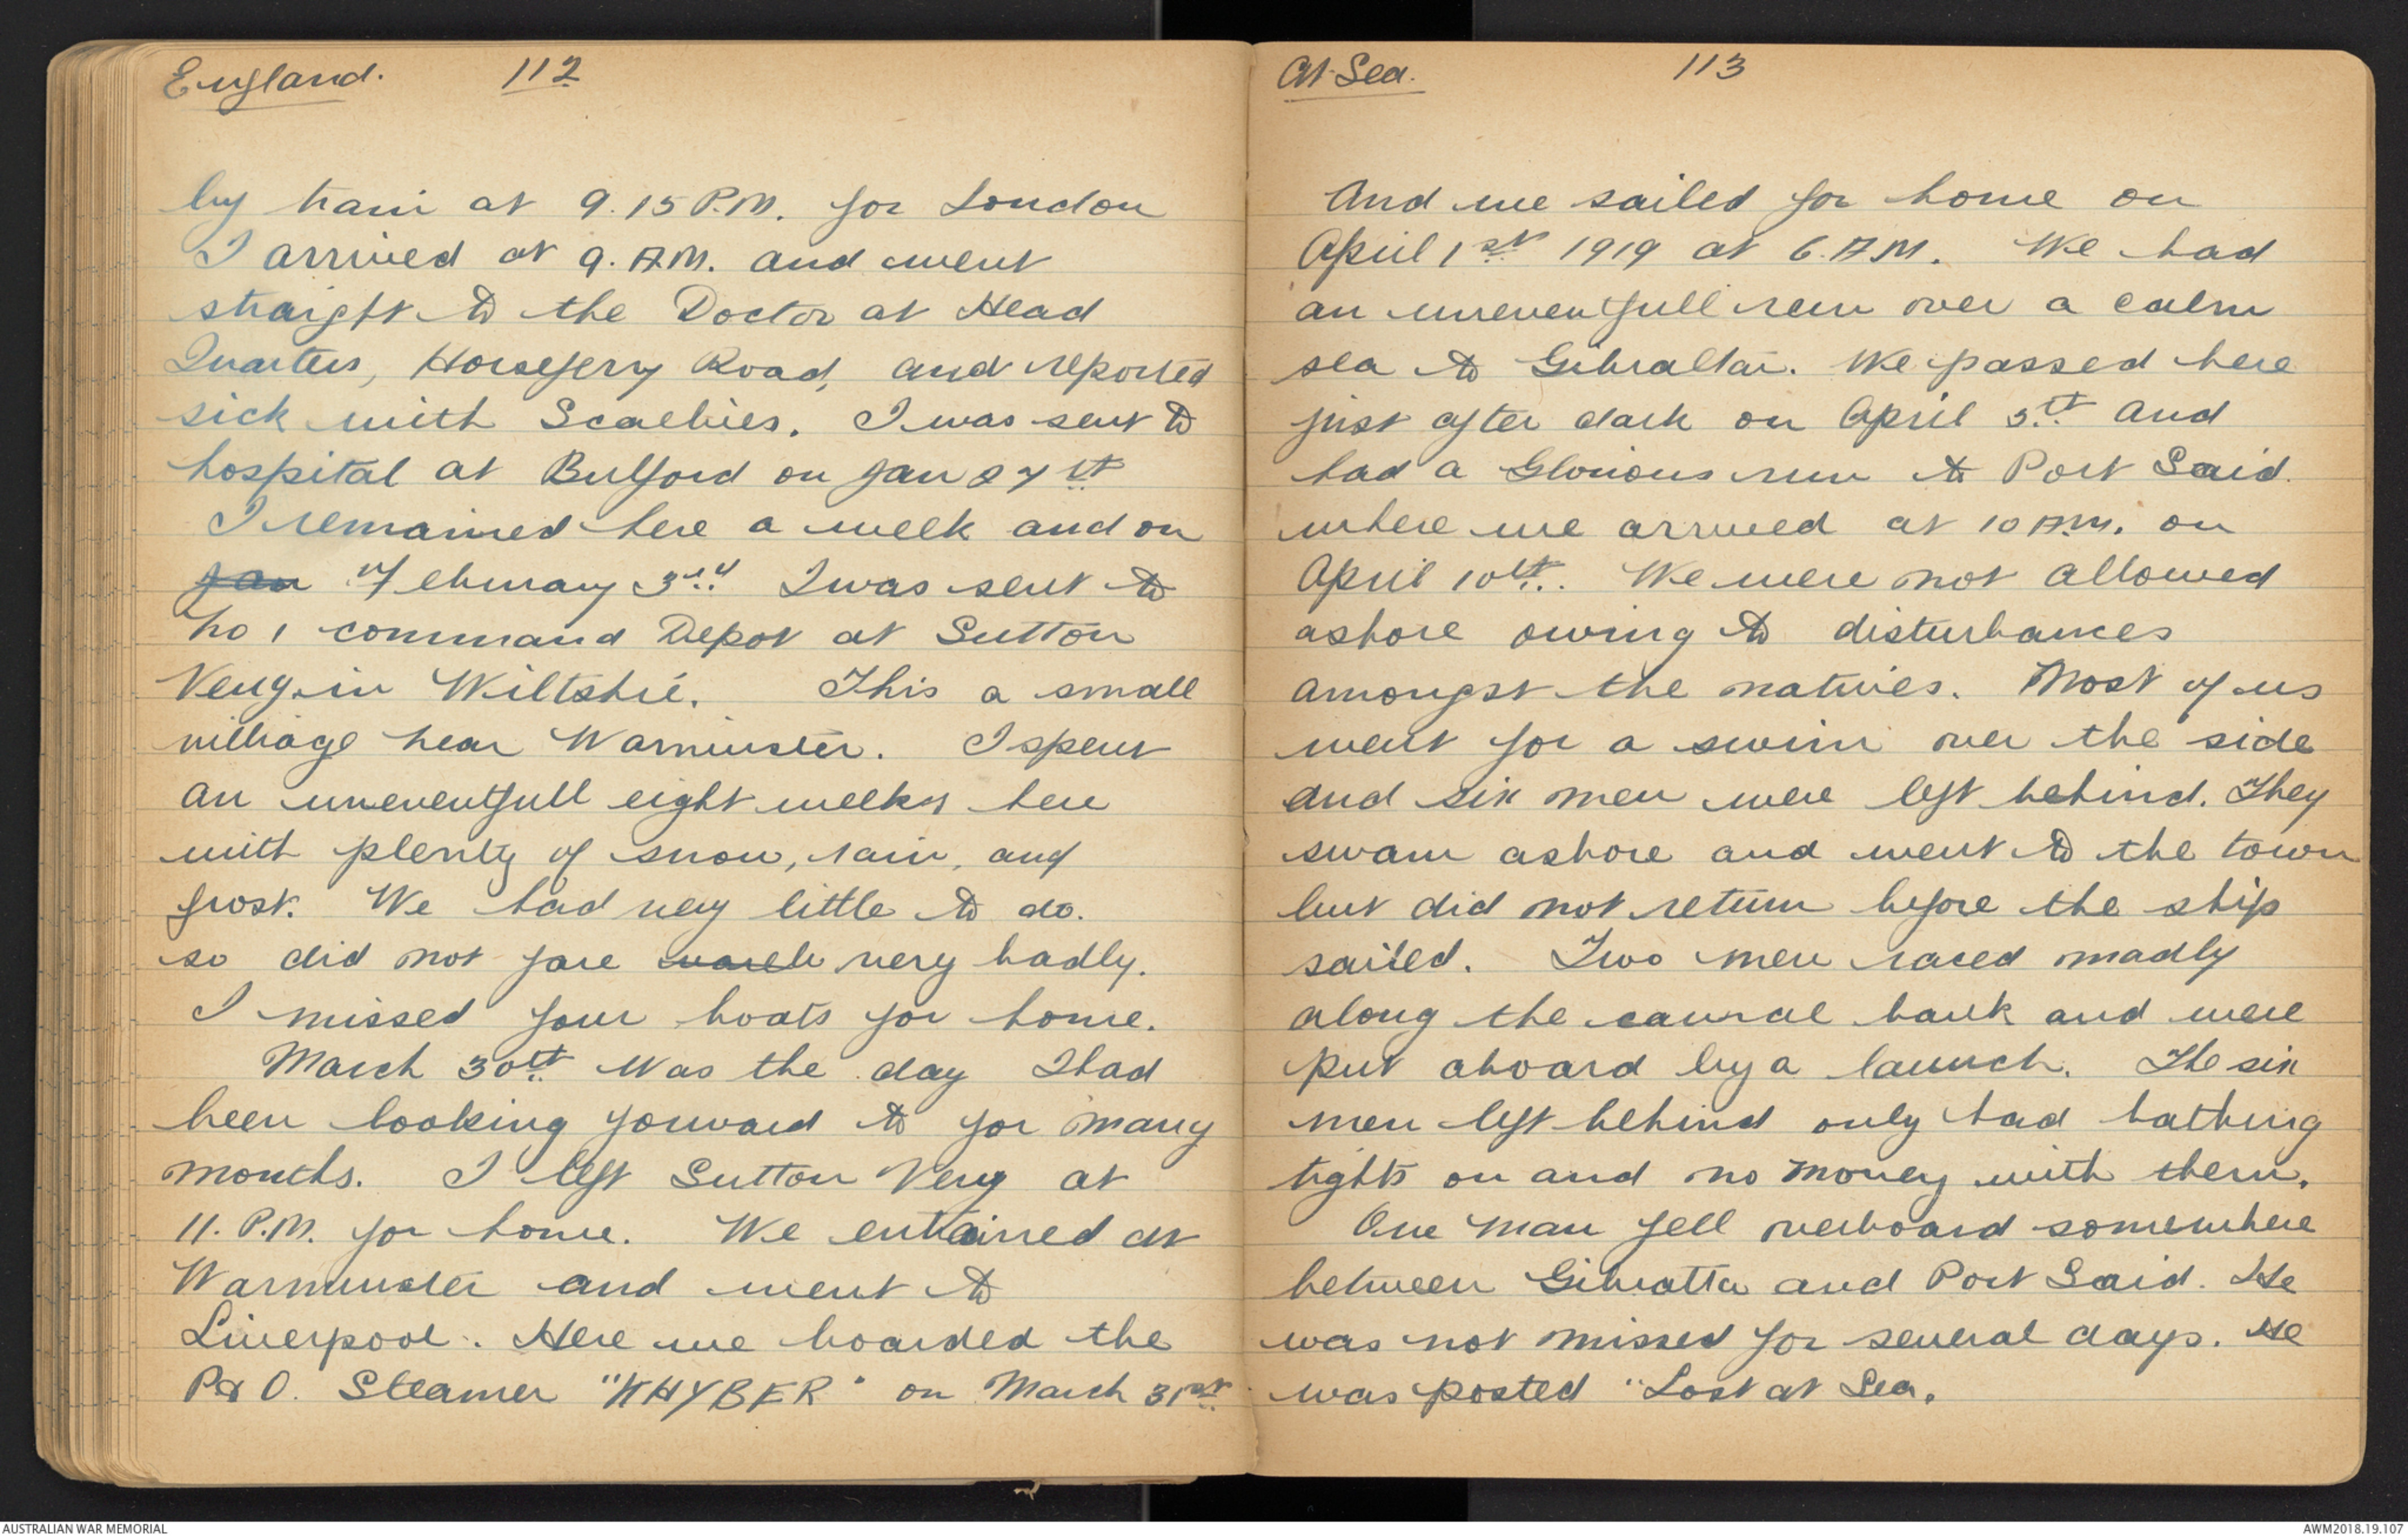 England. 112
by train at 9.15 P.M. for London
I arrived at 9. A.M. and went
straight to the Doctor at Head
Quarters, Horsefery Road, and reported
sick with Scaebies. I was sent to
hospital at Bulford on Jan 27th
I remained here a week and on
Jan February 3rd I was sent to
No 1 command Depot at Sutton
Veny in Wiltshie. This a small
villiage near Warminster. I spent
an uneventfull eight weeks here
with plenty of snow, rain, and
frost. We had very little to do.
so did not fare very badly.
I missed four boats for home.
March 30th Was the day I had
been looking forward to for many
months. I left Sutton Veny at
11. P.M. for home. We entrained at
Warminster and went to
Liverpool. Here we boarded the
P & O. Steamer "KHYBER" on March 31st
At Sea. 113
And we sailed for home on
April 1st 1919 at 6. A.M. We had
an uneventfull run over a calm
sea to Gibraltar. We passed here
just after dark on April 5th and
had a Glorious run to Port Said.
where we arrived at 10 A.M. on
April 10th. We were not allowed
ashore owing to disturbances
amongst the natives. Most of us
went for a swim over the side
and six men were left behind. They
swam ashore and went to the town
but did not return before the ship
sailed. Two men raced madly
along the cannal bank and were
put aboard by a launch. The six
men left behind only had bathing
tights on and no money with them.
One man fell overboard somewhere
between Gibralta and Port Said. He
was not missed for several days. He
was posted "Lost at Sea.
AUSTRALIAN WAR MEMORIAL
AWM2018.19.107